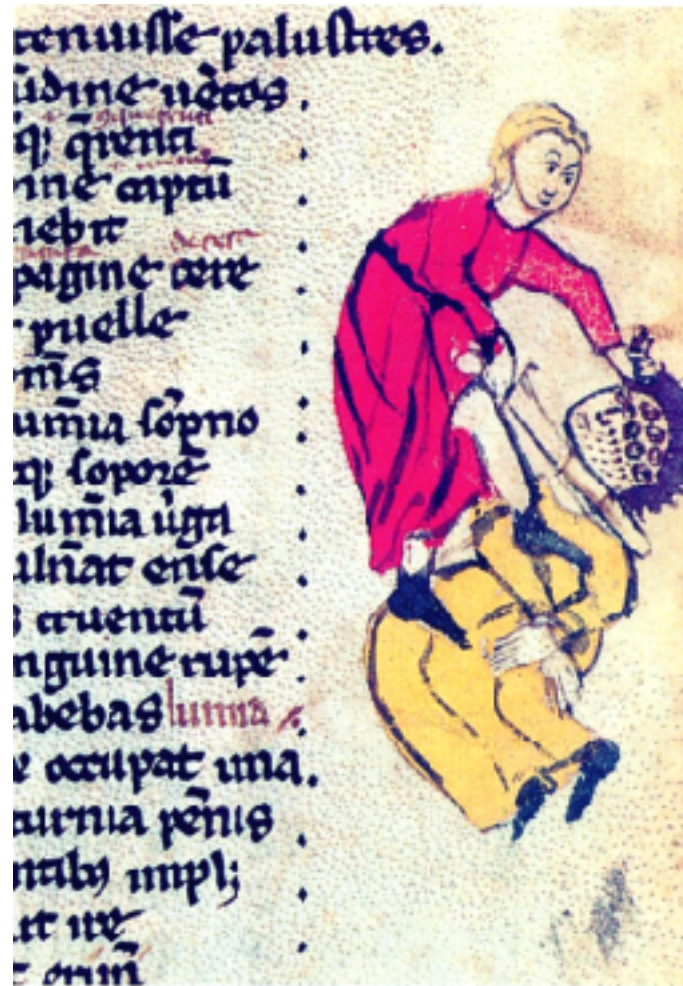 tenuisse palustres.
ūdine uētos .
q; q̄renti
rine captū
nebit
pagine cere
puelle
nīs
umīa sōpno
q; soporē
lumīa ūga
ulnat ense
s cruentū
nguine rupē
abebas lumina
e occupat una.
turnia pēnis
ntibꝫ impl;
ut ire